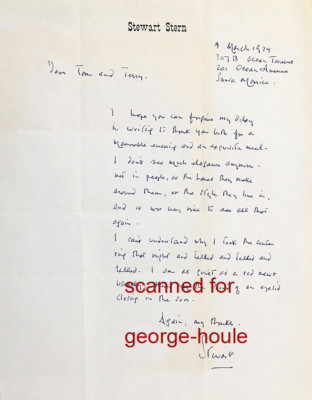 Stewart Stern
9 March 1974
307B Ocean Towers
201 Ocean Avenue
Santa Monica.
Dear Tom and Terry.
I hope you can forgive my delay
in writing to thank you both for a
memorable evening and an exquisite meal.
I don't see much elegance anymore -
not in people, or the homes they make
around them, or the style they live in,
and it was very nice to see all that
again.
I can't understand why I took the center
ring that night and talked and talked and
talked. I am as quiet as a red newt
usually,
scanned for
an eyelid
closing in the
Again, my thanks.
george-houle
Stewart